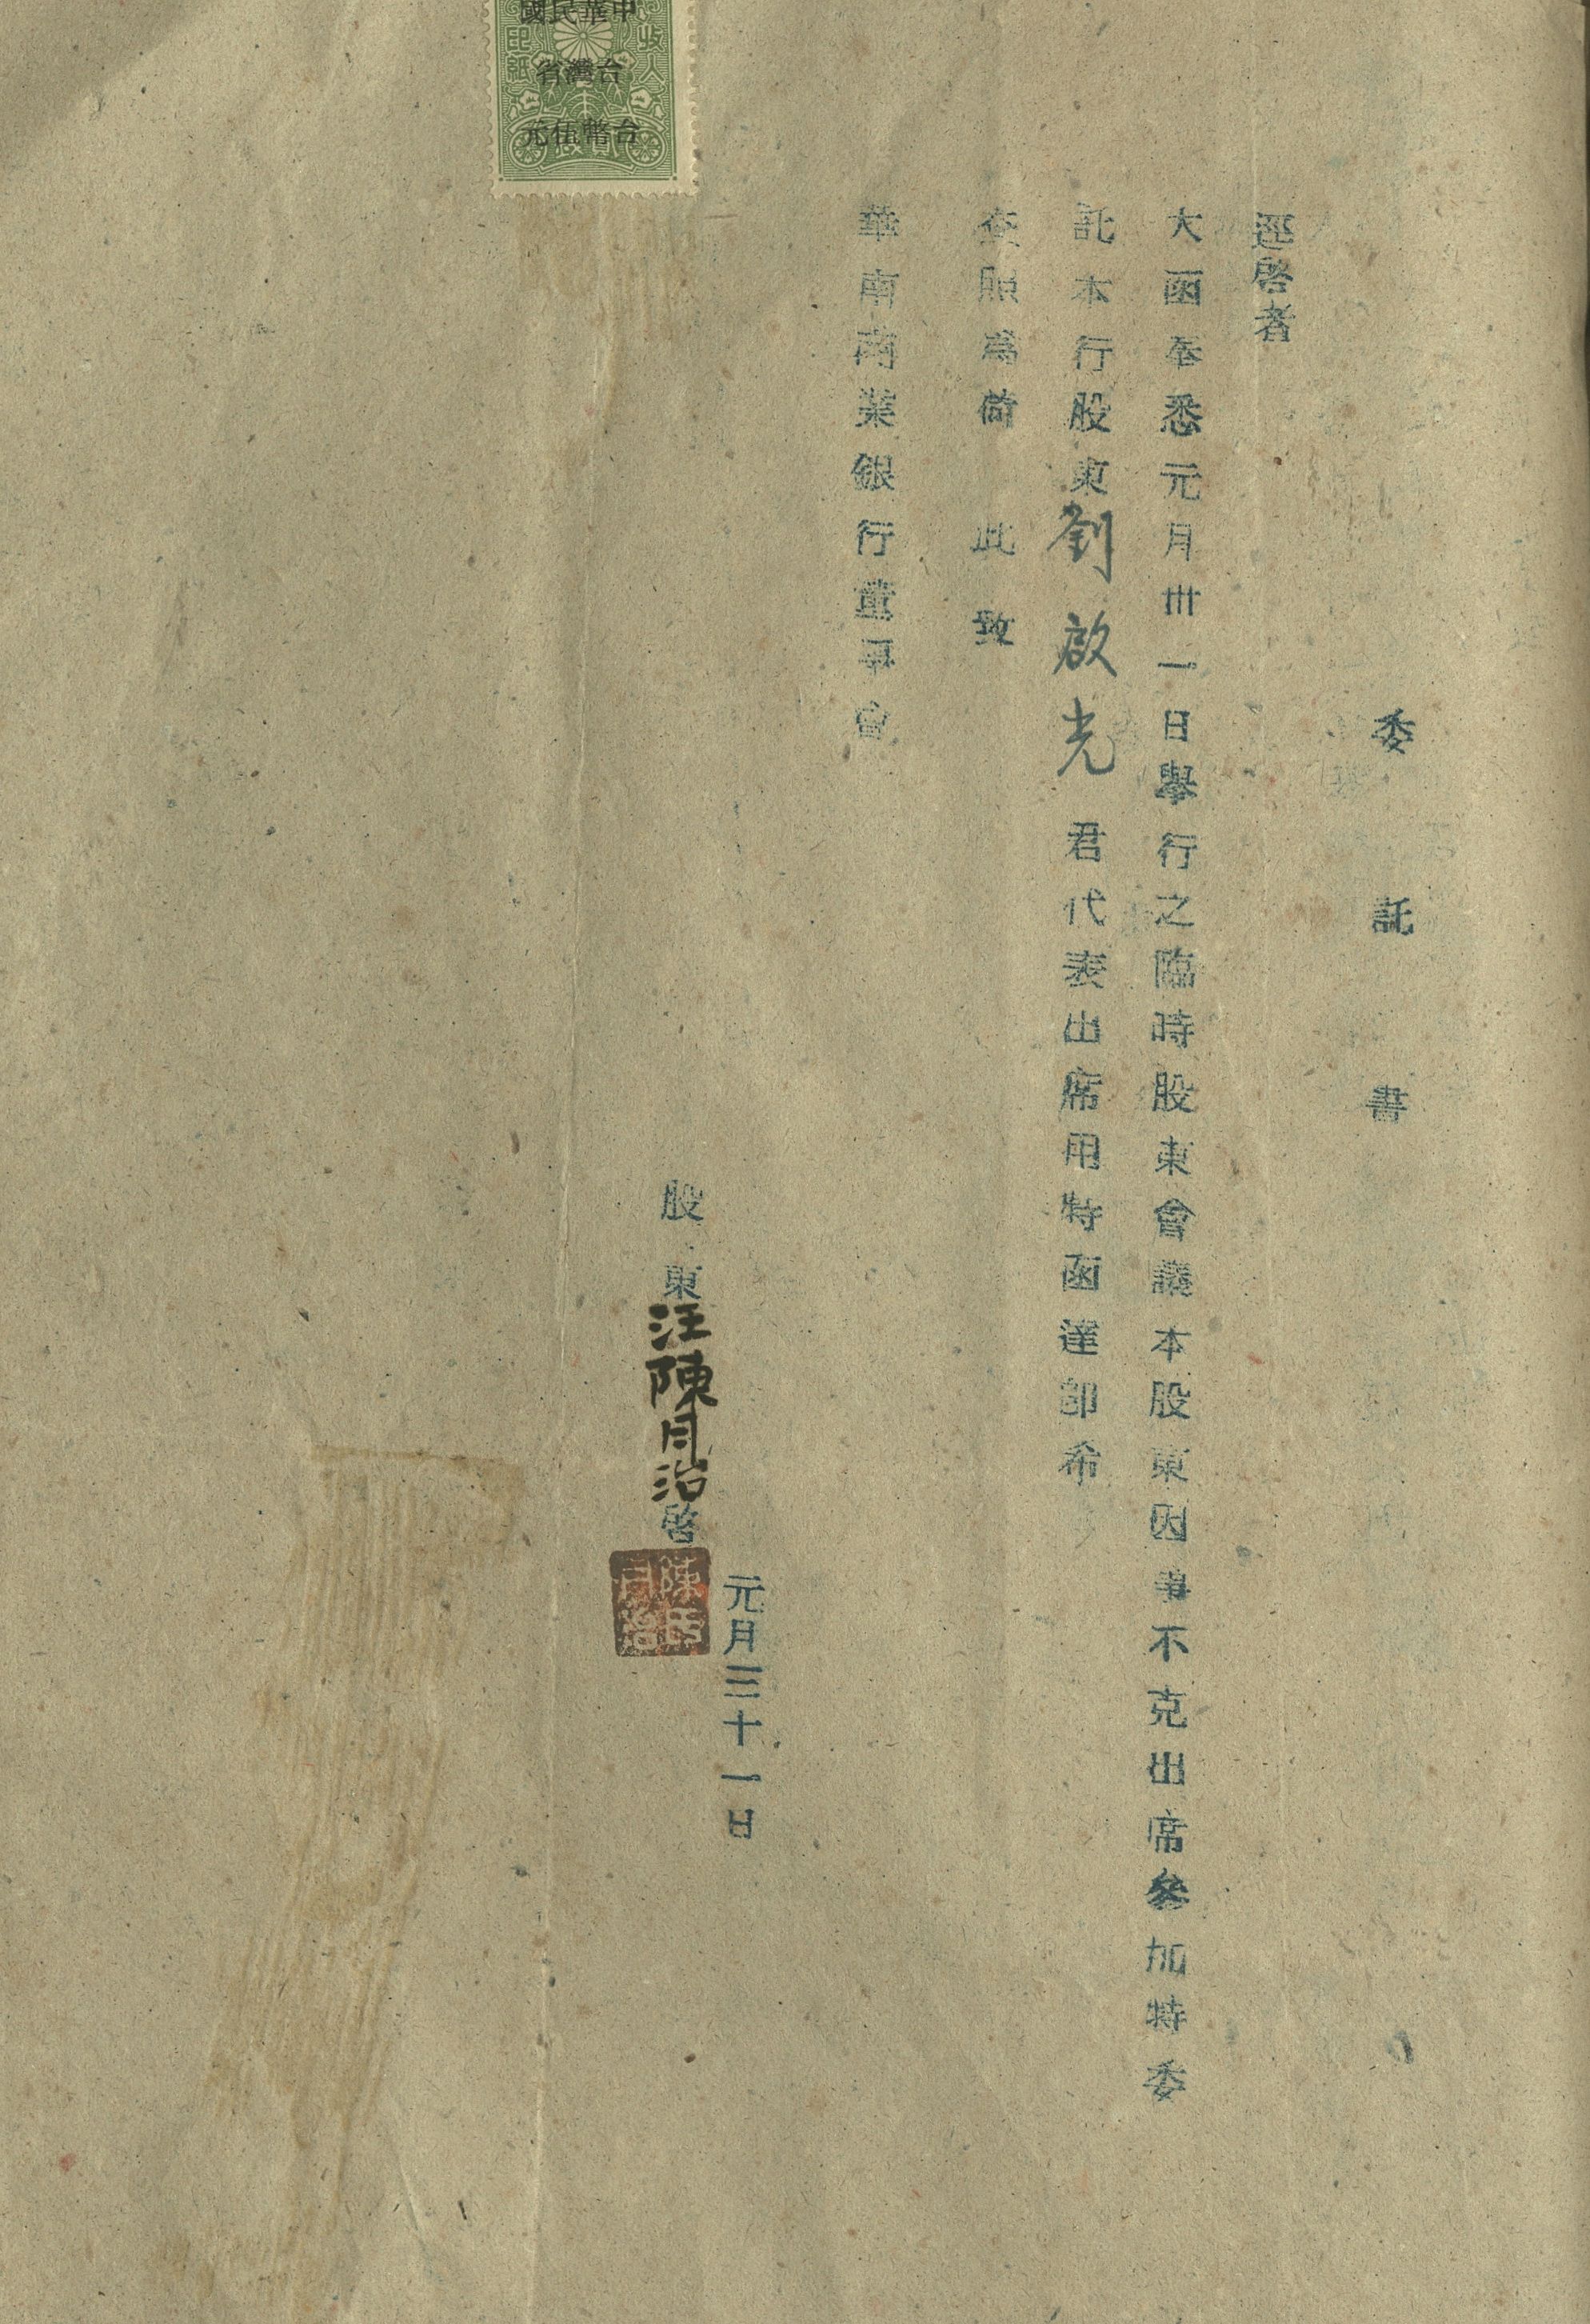 委託書
逕啓者
大函奉悉元月卅一日舉行之臨時股東會議本股東因事不克出席參加特委
託本行股東劉啟光君代表出席用特函達卽希
查照爲荷 此致
華南商業銀行董事會
元月三十一日
股東汪陳月治啓
陳氏
月治
國民華中
收入
印紙
省灣台
元伍幣台